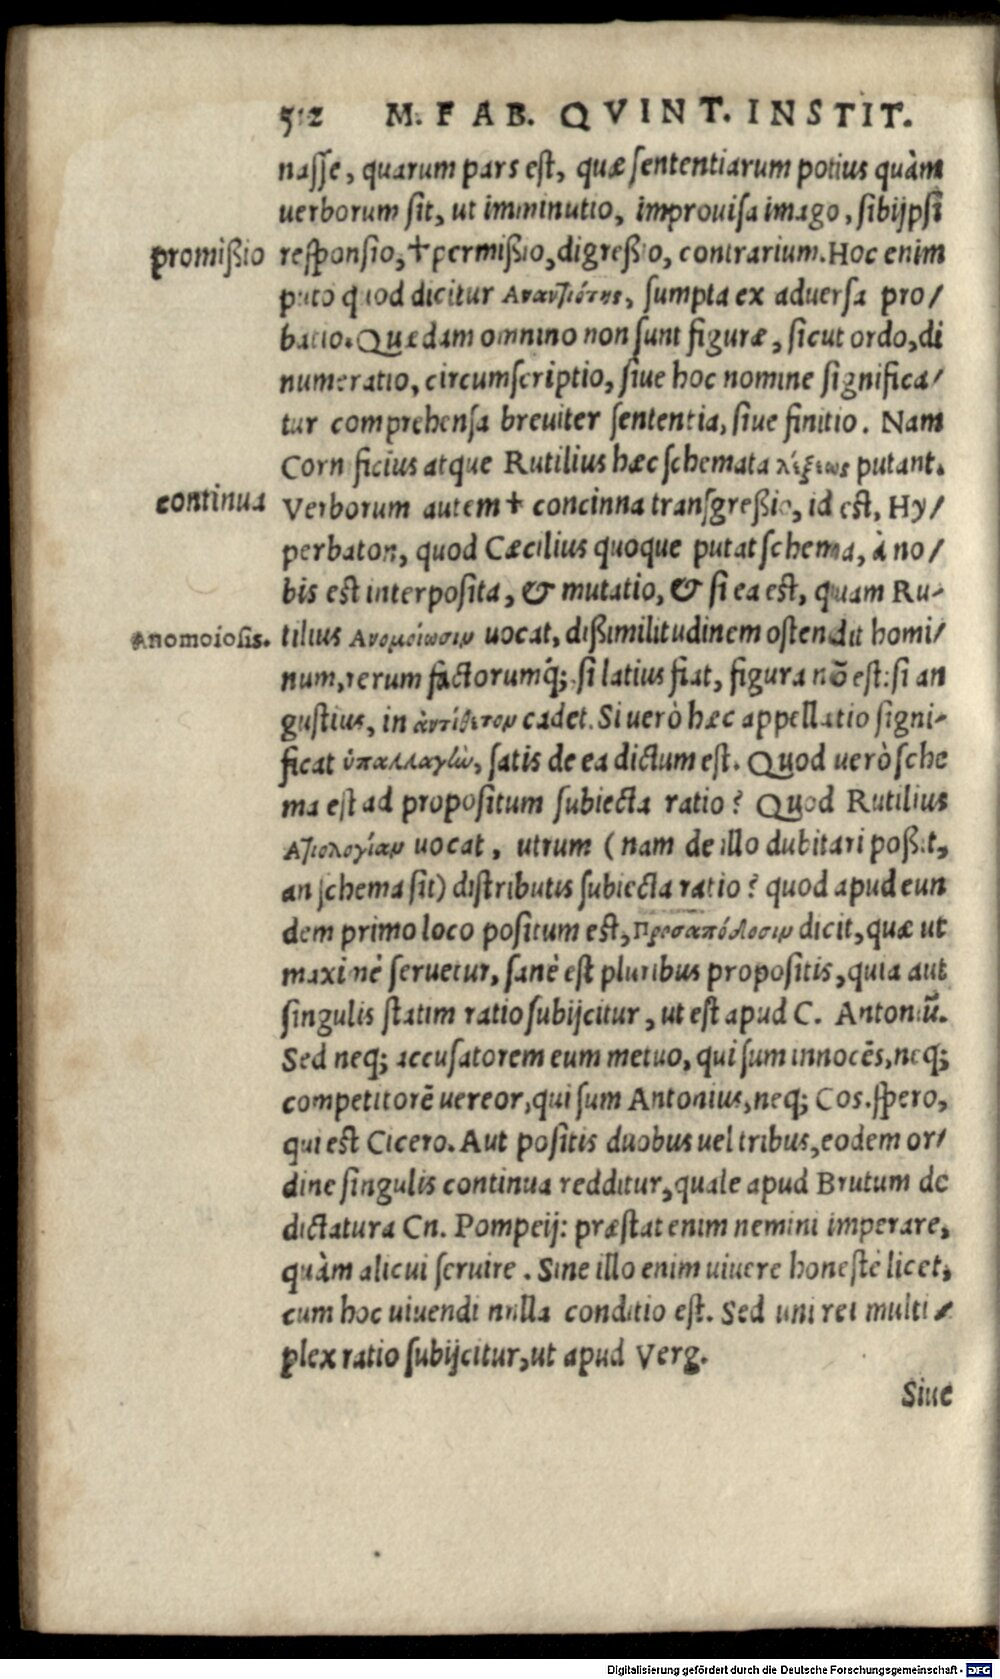 512 M. FAB. QVINT. INSTIT.
nasse, quarum pars est, quæ sententiarum potius quàm
uerborum sit, ut imminutio, improuisa imago, sibijpsi
promißio
responsio, † permißio, digreßio, contrarium. Hoc enim
puto quod dicitur Αναντιότης, sumpta ex aduersa pro/
batio. Quædam omnino non sunt figuræ, sicut ordo, di
numeratio, circumscriptio, siue hoc nomine significa/
tur comprehensa breuiter sententia, siue finitio. Nam
Cornificius atque Rutilius hæc schemata λέξεως putant.
continua
Verborum autem † concinna transgreßio, id est, Hy/
perbaton, quod Cæcilius quoque putat schema, à no/
bis est interposita, & mutatio, & si ea est, quam Ru-
Anomoiosis.
tilius Ανομοίωσιν uocat, dißimilitudinem ostendit homi/
num, rerum factorumq́;. si latius fiat, figura nō est: si an
gustius, in ἀντίθετον cadet. Si uerò hæc appellatio signi-
ficat ὑπαλλαγὼ, satis de ea dictum est. Quod uerò sche
ma est ad propositum subiecta ratio? Quod Rutilius
Αἰτιολογίαν uocat, utrum (nam de illo dubitari poßit,
an schema sit) distributis subiecta ratio? quod apud eun
dem primo loco positum est, Προσαπόδοσιν dicit, quæ ut
maximè seruetur, sanè est pluribus propositis, quia aut
singulis statim ratio subijcitur, ut est apud C. Antoniū.
Sed neq; accusatorem eum metuo, qui sum innocēs, neq;
competitorē uereor, qui sum Antonius, neq; Cos. spero,
qui est Cicero. Aut positis duobus uel tribus, eodem or/
dine singulis continua redditur, quale apud Brutum de
dictatura Cn. Pompeij: præstat enim nemini imperare,
quàm alicui seruire. Sine illo enim uiuere honestè licet,
cum hoc uiuendi nulla conditio est. Sed uni rei multi/
plex ratio subijcitur, ut apud Verg.
Siue
Digitalisierung gefördert durch die Deutsche Forschungsgemeinschaft - DFG